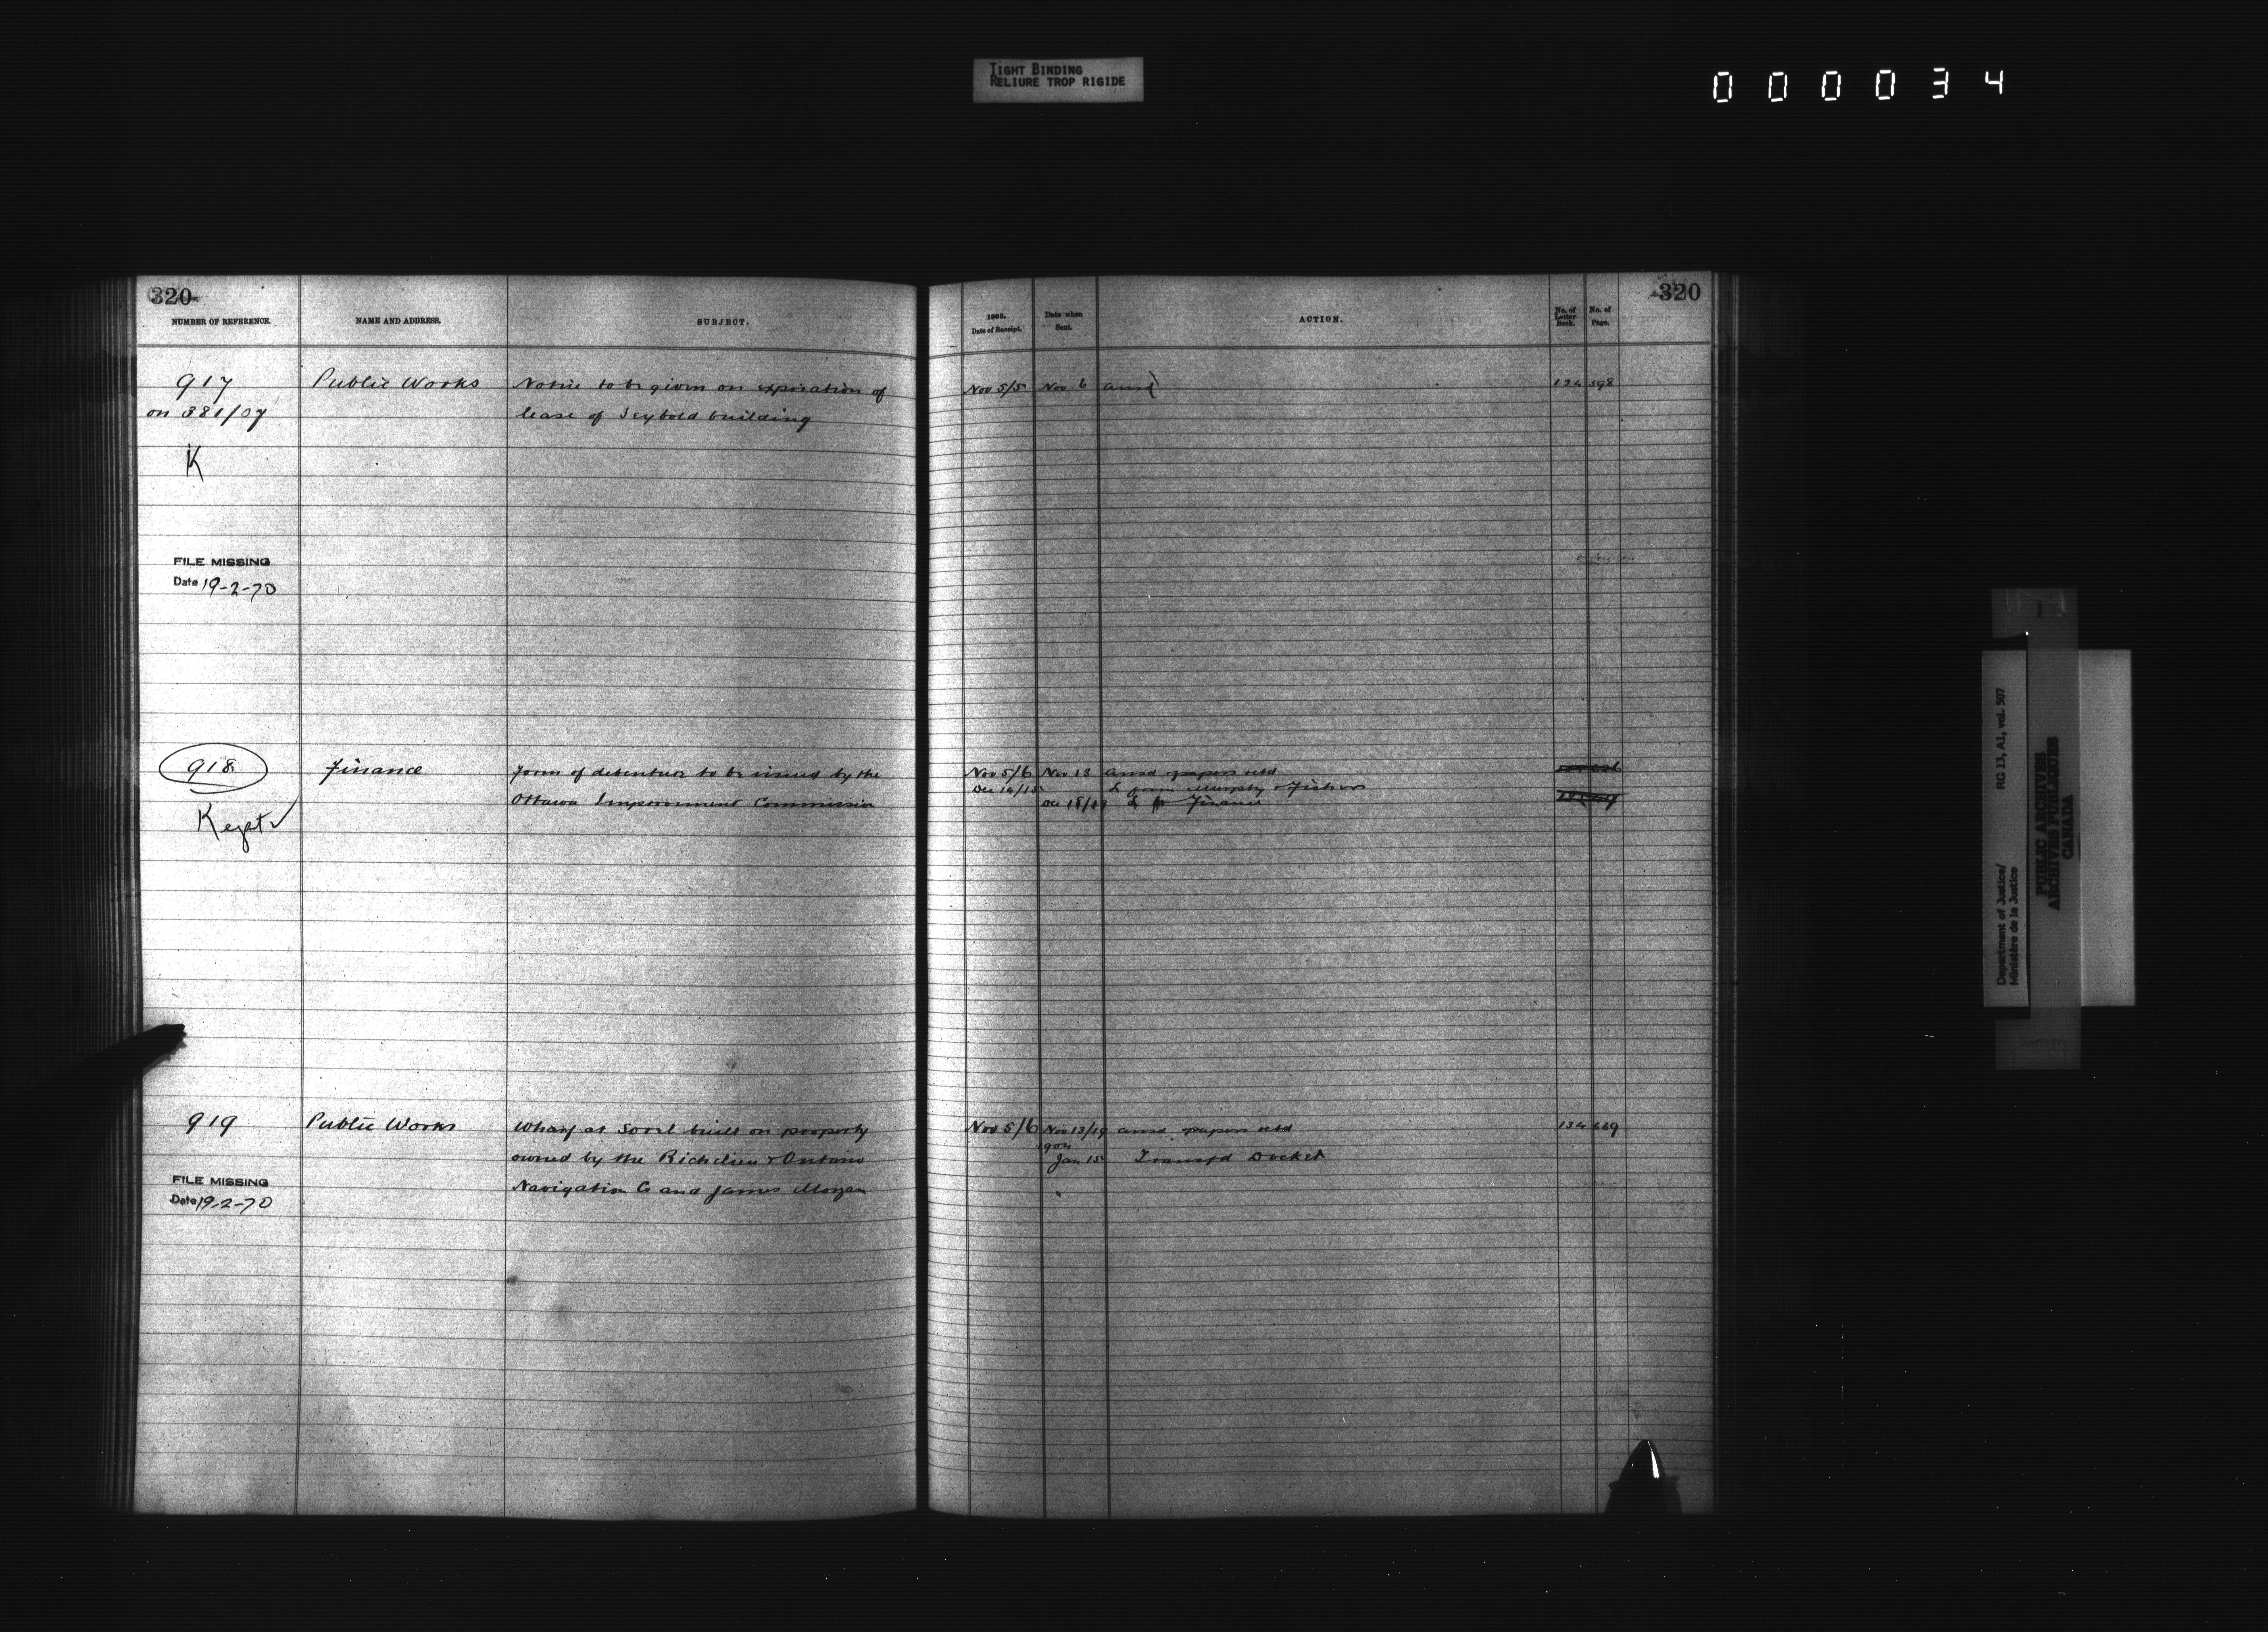 TIGHT BINDING
RELIURE TROP RIGIDE
000034
320
NUMBER OF REFERENCE.
NAME AND ADDRESS.
SUBJECT.
917
on 381/07
K
Public Works
Notice to be given on expiration of
lease of Seybold building
FILE MISSING
Date 19-2-70
918
Kept
Finance
Form of debenture to be issued by the
Ottawa Improvement Commission
919
Public Works
Wharf at Sorel built on property
owned by the Richelieu & Ontario
Navigation Co and James Morgan
FILE MISSING
Date 19-2-70
320
1903.
Date of Receipt.
Date when
Sent.
ACTION.
No. of
Letter
Book.
No. of
Page.
Nov 5/5 Nov 6 ansd 134 598
Nov 5/6 Nov 13 ansd papers retd
Dec 14/15 L from Murphy & Fisher
Dec 18/19 L to Finance
Nov 5/6 Nov 13/19 ansd papers retd 134 669
Jan 15 Transfd Docket
Department of Justice/
Ministère de la Justice
RG 13, A1, vol. 507
PUBLIC ARCHIVES
ARCHIVES PUBLIQUES
CANADA